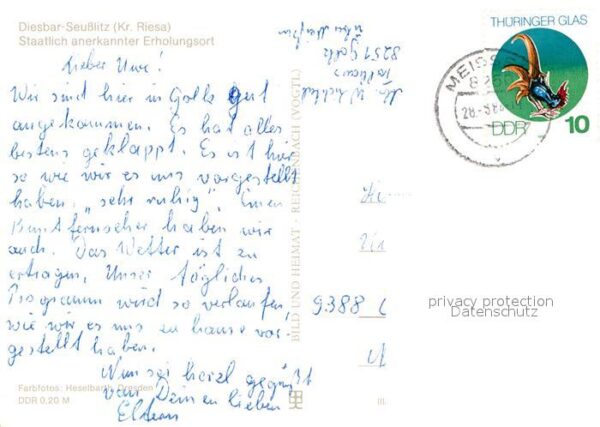 Diesbar-Seußlitz (Kr. Riesa)
Staatlich anerkannter Erholungsort
Lieber Uwe!
Wir sind hier in Golk gut
angekommen. Es hat alles
bestens geklappt. Es ist hier
so wie wir es uns vorgestellt
haben, "sehr ruhig". Einen
Buntfernseher haben wir
auch. Das Wetter ist zu
ertragen. Unser tägliches
Programm wird so verlaufen,
wie wir es uns zu hause vor
gestellt haben.
Nun sei herzl gegrüßt
von Deinen lieben
Eltern
Farbfotos: Heselbarth, Dresden
DDR 0,20 M
BILD UND HEIMAT · REICHENBACH (VOGTL)
8251 Golk
über Meißen
THÜRINGER GLAS
DDR 10
MEISSEN
9388
privacy protection
Datenschutz